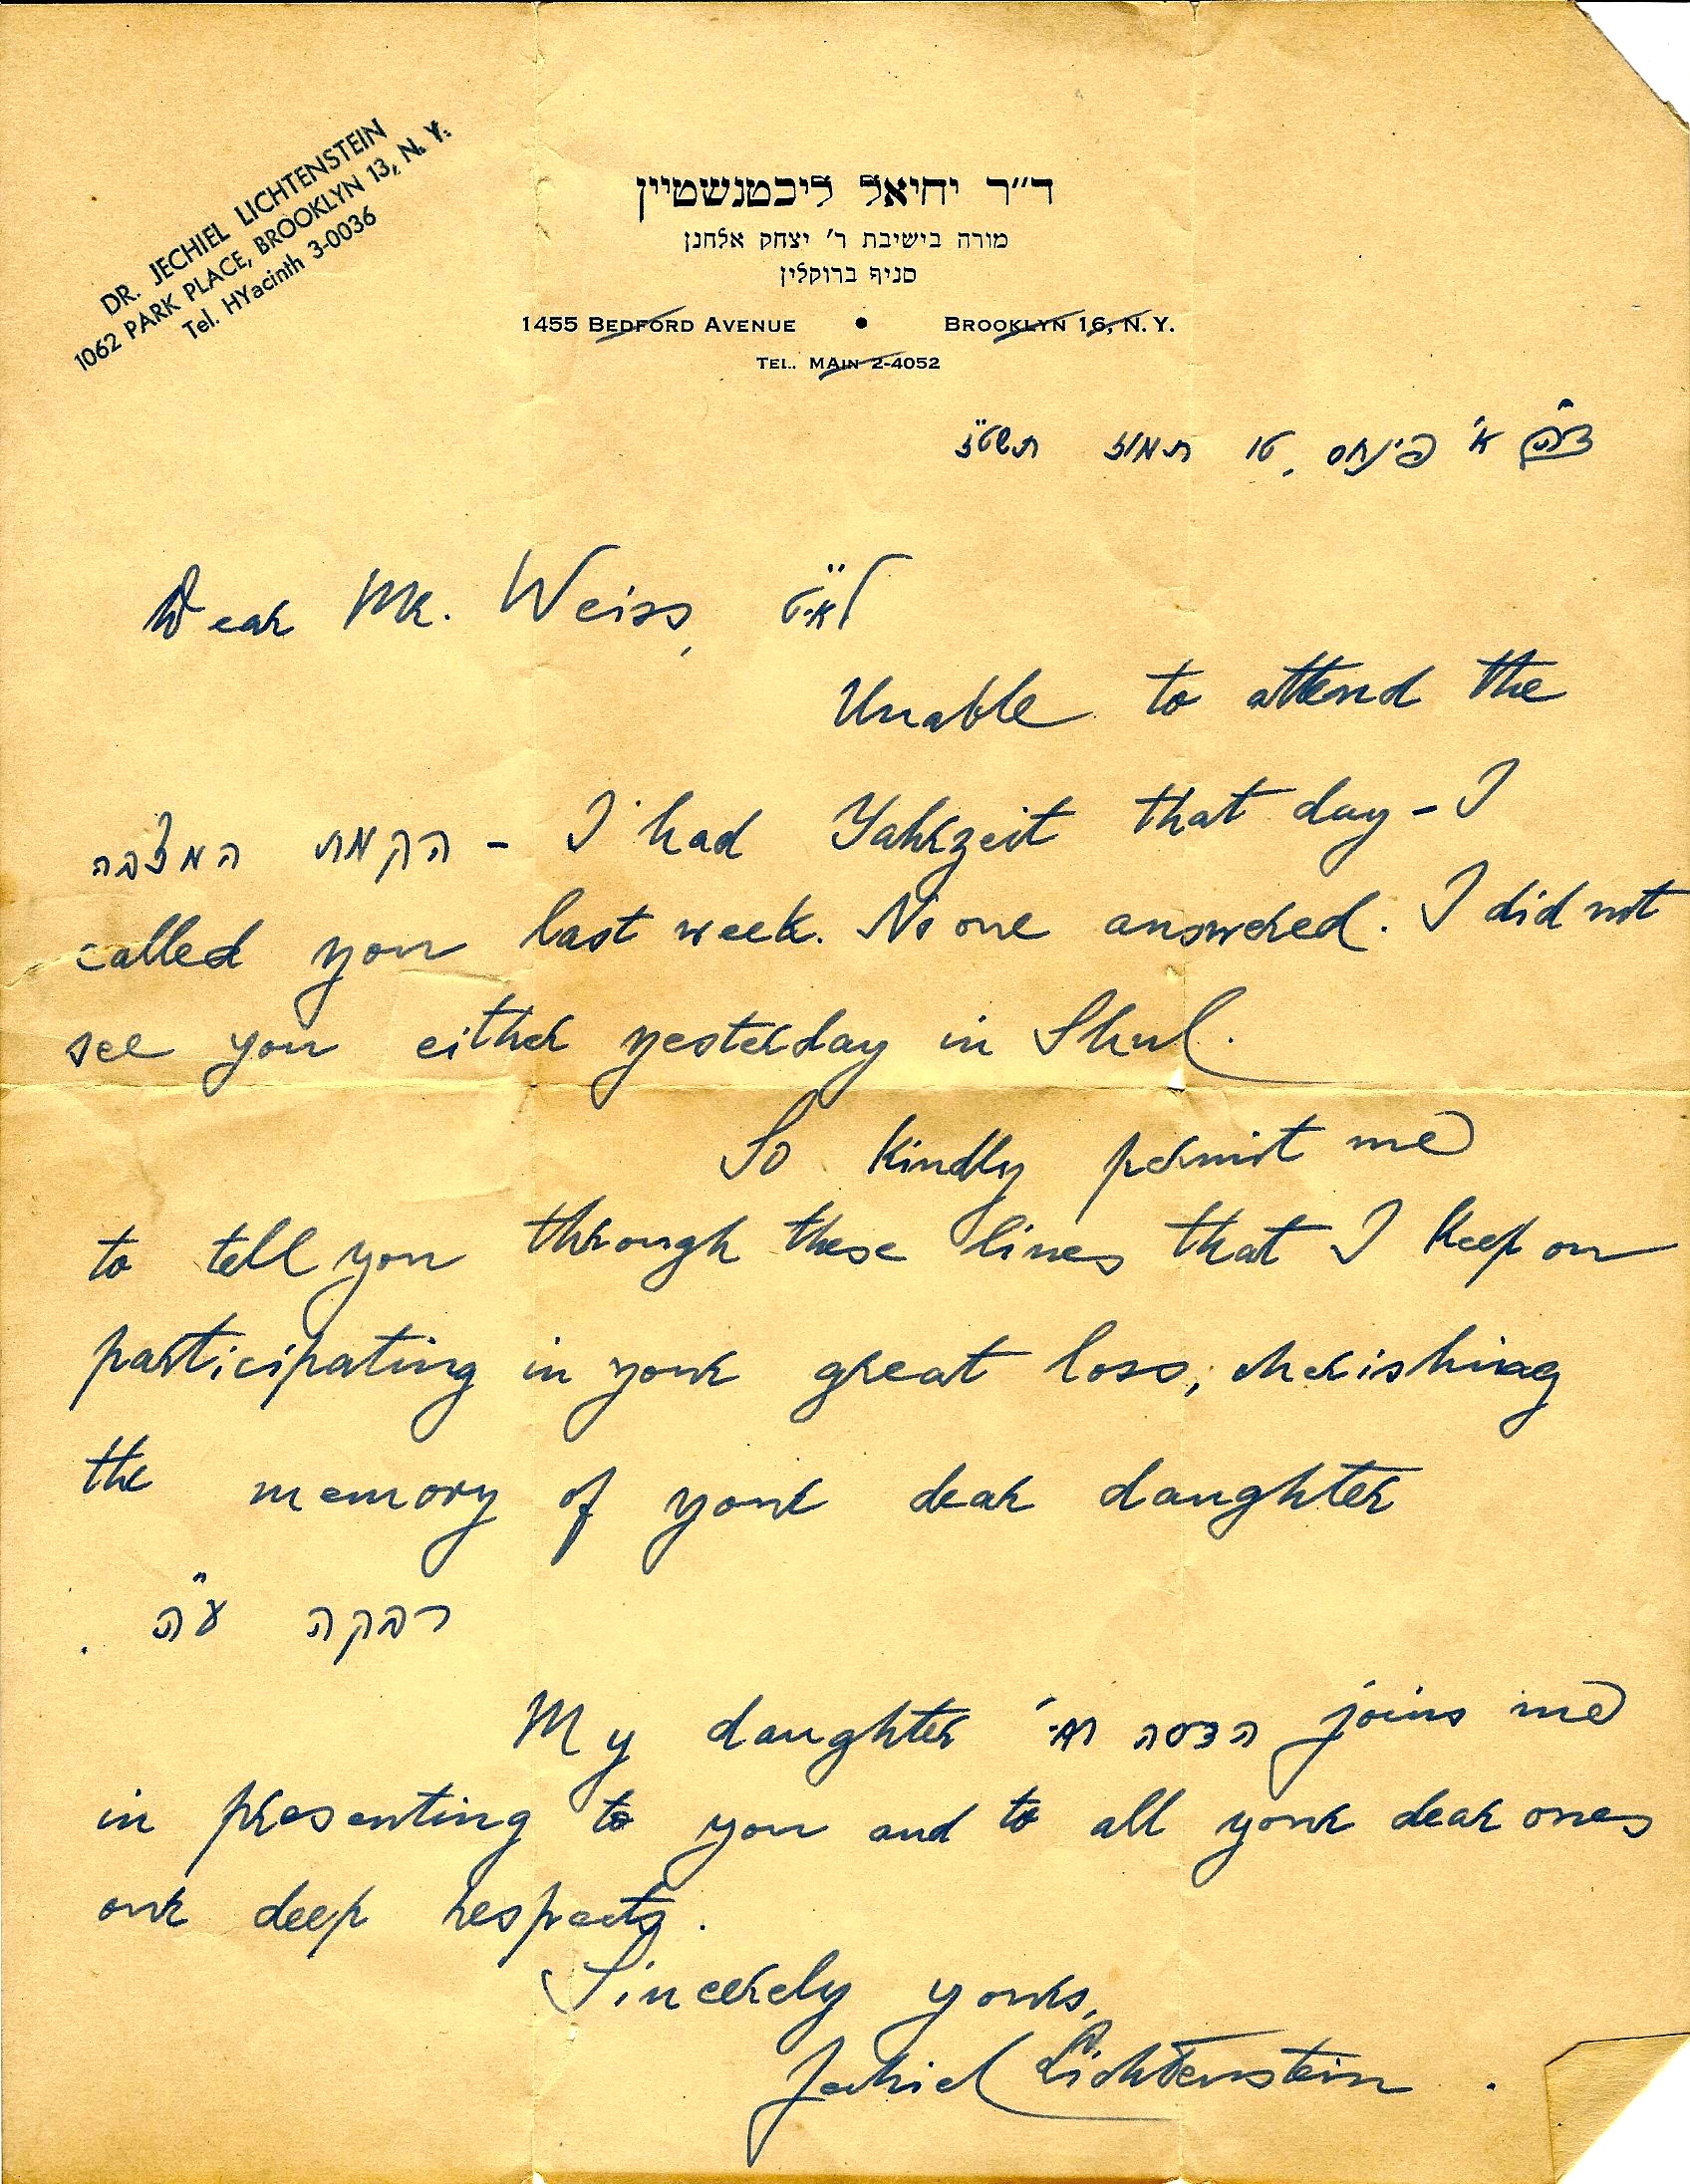 DR. JECHIEL LICHTENSTEIN
1062 PARK PLACE, BROOKLYN 13, N. Y.
Tel. HYacinth 3-0036
ד״ר יחיאל ליכטנשטיין
מורה בישיבת ר׳ יצחק אלחנן
סניף ברוקלין
1455 BEDFORD AVENUE • BROOKLYN 16, N. Y.
TEL. MAIN 2-4052
א' פינחס, טו תמוז תשט"ז
Dear Mr. Weiss, לאי"ט
Unable to attend the
הקמת המצבה - I had Yahrzeit that day - I
called you last week. No one answered. I did not
see you either yesterday in Shul.
So kindly permit me
to tell you through these lines that I keep on
participating in your great loss, cherishing
the memory of your dear daughter
רבקה ע"ה .
My daughter הדסה תחי' joins me
in presenting to you and to all your dear ones
our deep respects.
Sincerely yours,
Jechiel Lichtenstein .